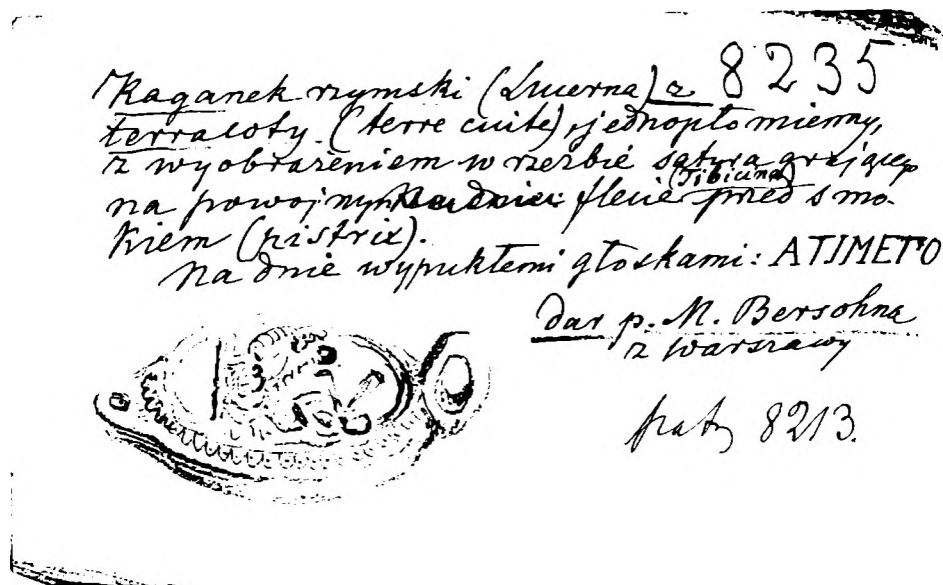 8235
Kaganek rzymski (Lucerna) z
terracoty (terre cuite), jednopłomienny,
z wyobrażeniem w rzezbie satyra grającego
(Tibicina)
na powojnym flecie przed smo-
kiem (pistrix).
Na dnie wypukłemi głoskami: ATIMETO
dar p. M. Bersohna
z Warszawy
patrz 8213.